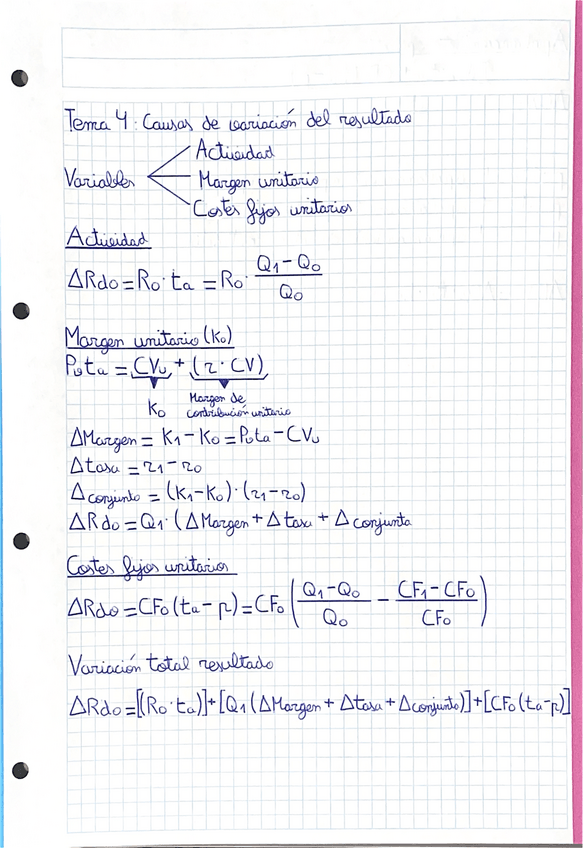 Tema 4: Causas de variación del resultado
Actividad
Variables
Margen unitario
Costes fijos unitarios
Actividad
ΔRdo = R₀ · ta = R₀ · (Q₁ - Q₀) / Q₀
Margen unitario (K₀)
Pᵥta = CVᵤ + (r · CV)
K₀ Margen de contribución unitario
ΔMargen = K₁ - K₀ = Pᵥta - CVᵤ
Δtasa = r₁ - r₀
Δconjunto = (K₁ - K₀) · (r₁ - r₀)
ΔRdo = Q₁ · (ΔMargen + Δtasa + Δconjunta
Costes fijos unitarios
ΔRdo = CF₀ (ta - p) = CF₀ ((Q₁ - Q₀) / Q₀ - (CF₁ - CF₀) / CF₀)
Variación total resultado
ΔRdo = [(R₀ · ta)] + [Q₁ (ΔMargen + Δtasa + Δconjunto)] + [CF₀ (ta - p)]